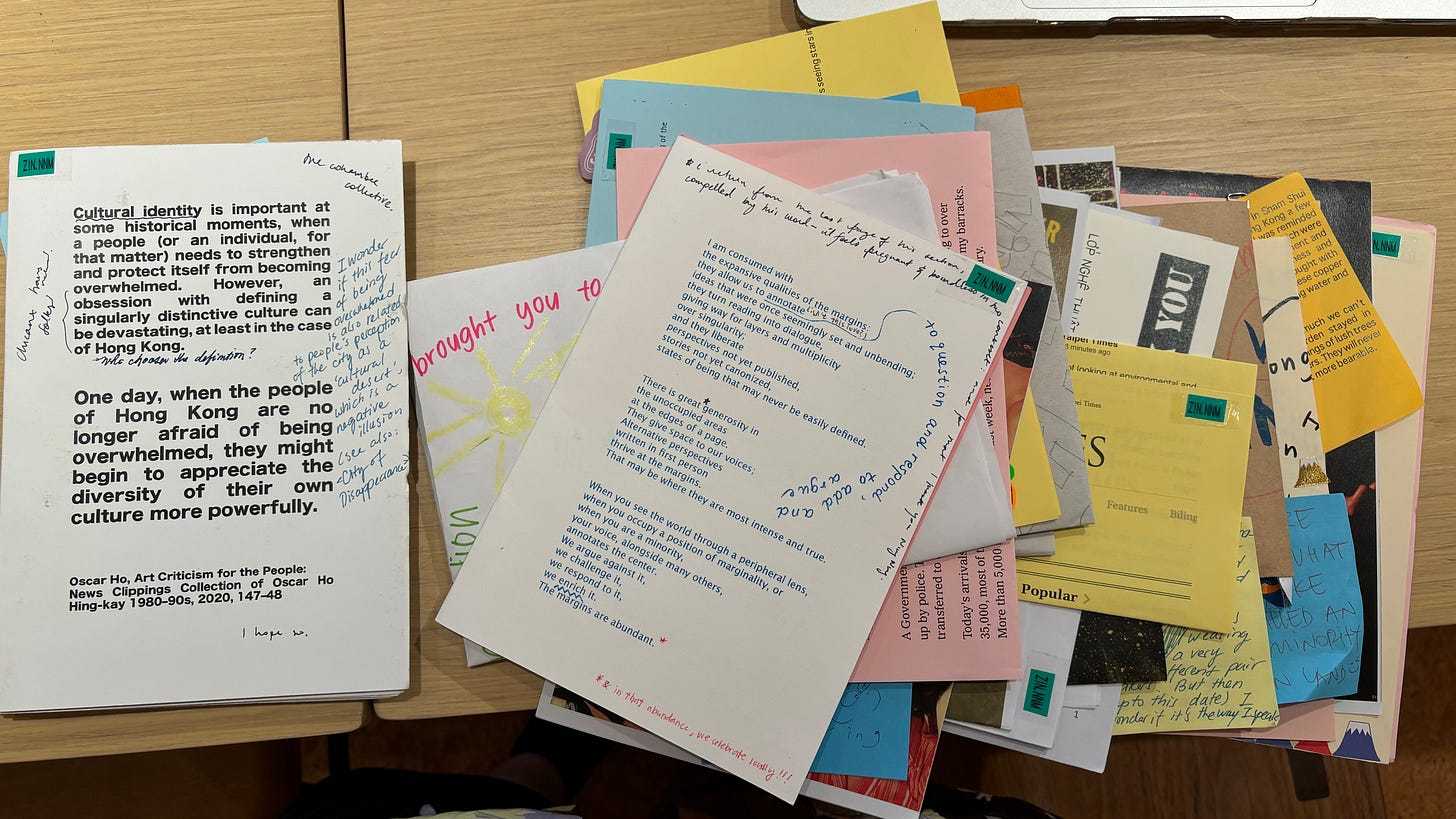 ZIN.NNM
the combahee
collective.
Cultural identity is important at
some historical moments, when
a people (or an individual, for
that matter) needs to strengthen
and protect itself from becoming
overwhelmed. However, an
obsession with defining a
singularly distinctive culture can
be devastating, at least in the case
of Hong Kong.
Who chooses the definition?
I wonder
if this fear
of being
overwhelmed
is also related
to people's perception
of the city as a
'cultural
desert',
which is a
negative
illusion
(see also:
<City of
Disappearance>
One day, when the people
of Hong Kong are no
longer afraid of being
overwhelmed, they might
begin to appreciate the
diversity of their own
culture more powerfully.
Oscar Ho, Art Criticism for the People:
News Clippings Collection of Oscar Ho
Hing-kay 1980–90s, 2020, 147–48
I hope so.
brought you to
seeing stars in
of the
* I return from the last page of this section,
compelled by this word - it feels pregnant &
ZIN.NNM
I am consumed with
the expansive qualities of the margins;
they allow us to annotate
ideas that were once seemingly set and unbending;
they turn reading into dialogue,
giving way for layers and multiplicity
over singularity;
and they liberate
perspectives not yet published,
stories not yet canonized,
states of being that may never be easily defined.
There is great *generosity in
the unoccupied areas
at the edges of a page.
They give space to our voices;
Alternative perspectives
written in first person
thrive at the margins,
That may be where they are most intense and true.
When you see the world through a peripheral lens,
when you occupy a position of marginality, or
when you are a minority,
your voice, alongside many others,
annotates the center.
We argue against it,
we challenge it,
we respond to it,
we enrich it.
The margins are abundant. *
to question and respond,
to add
and argue
*& in that abundance, we celebrate loudly!!!
ng to over
my barracks.
week,
A Governme
up by police.
transferred to
Today's arrivals
35,000, most of
More than 5,000
LỚP NGHỆ THUẬT
YOU
Taipei Times
5 minutes ago
of looking at environmental and
ei Times
ZIN.NNM
ES
Features Biling
Popular >
ZIN.NNM
1
wearing
a very
ferent pair
But then
upto this date) I
onder if it's the way I speak
in Sham Shui
ng Kong a few
was reminded
ich were
ment and
ness and
ought with
ese copper
ng water and
much we can't
rden stayed in
ngs of lush trees
rs. They will never
more bearable.
ZIN.NNM
RE
WHAT
KE
UED AN
MINORITY
N LAND
ing